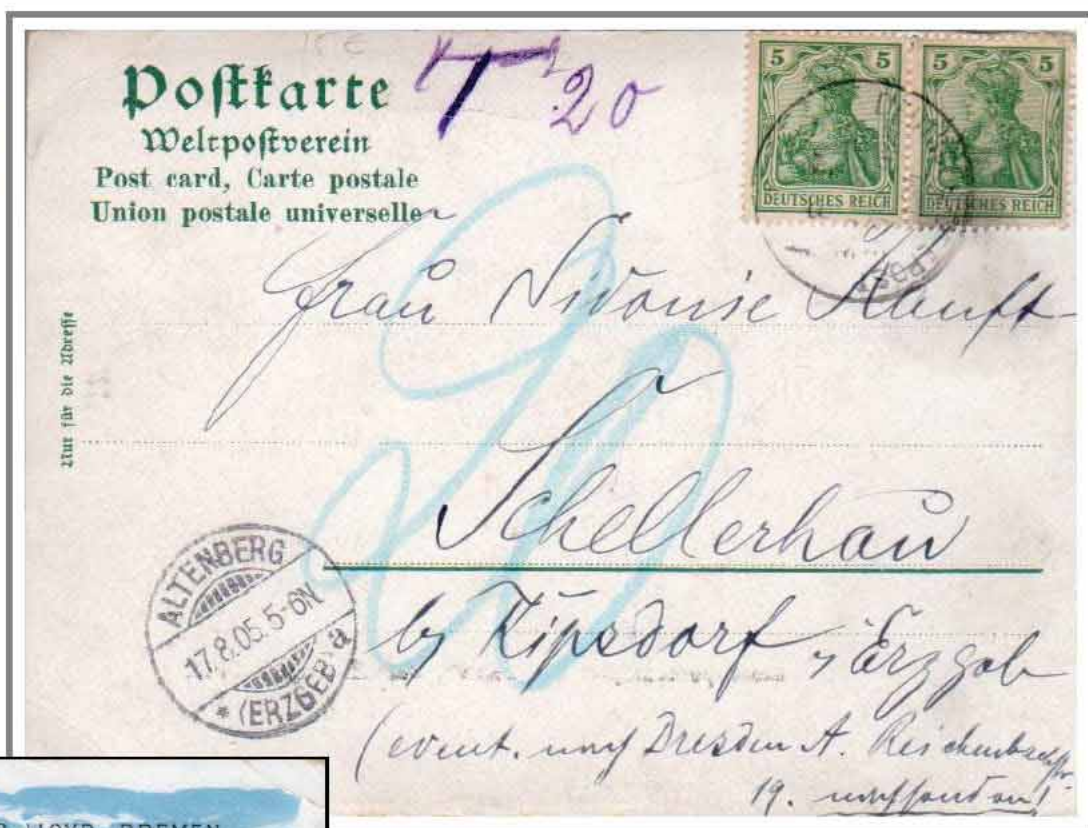 Postkarte
Weltpostverein
Post card, Carte postale
Union postale universelle
T 20
5 5 5 5
DEUTSCHES REICH DEUTSCHES REICH
Nur für die Adresse
Frau Sidonie
20
Schellerhau
by Kipsdorf Erzgeb
(event. nach Dresden A. Reichenbachstr
19. nachsenden!
ALTENBERG
17.8.05.5-6N
* (ERZGEB.) a
LLOYD BREMEN